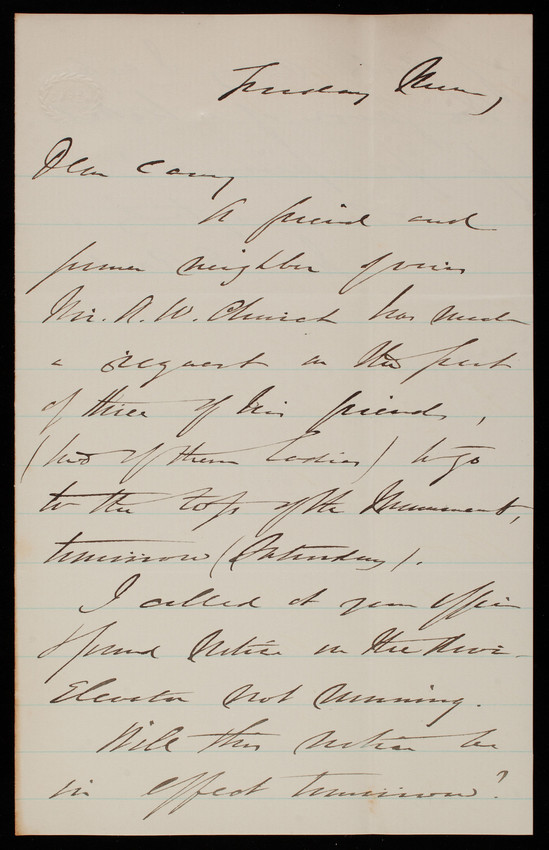 Dear Casey
A friend and
former neighbor of mine
Mr. A. W. Church has made
a request on the part
of three of his friends,
(two of them Ladies) to go
to the top of the Monument,
tomorrow (Saturday).
I called at your office
& found notice on the door-
Elevator not running.
Will this notice be
in effect tomorrow?